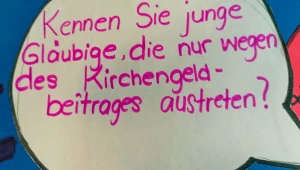 Kennen Sie junge
Gläubige, die nur wegen
des Kirchengeld-
beitrages austreten?